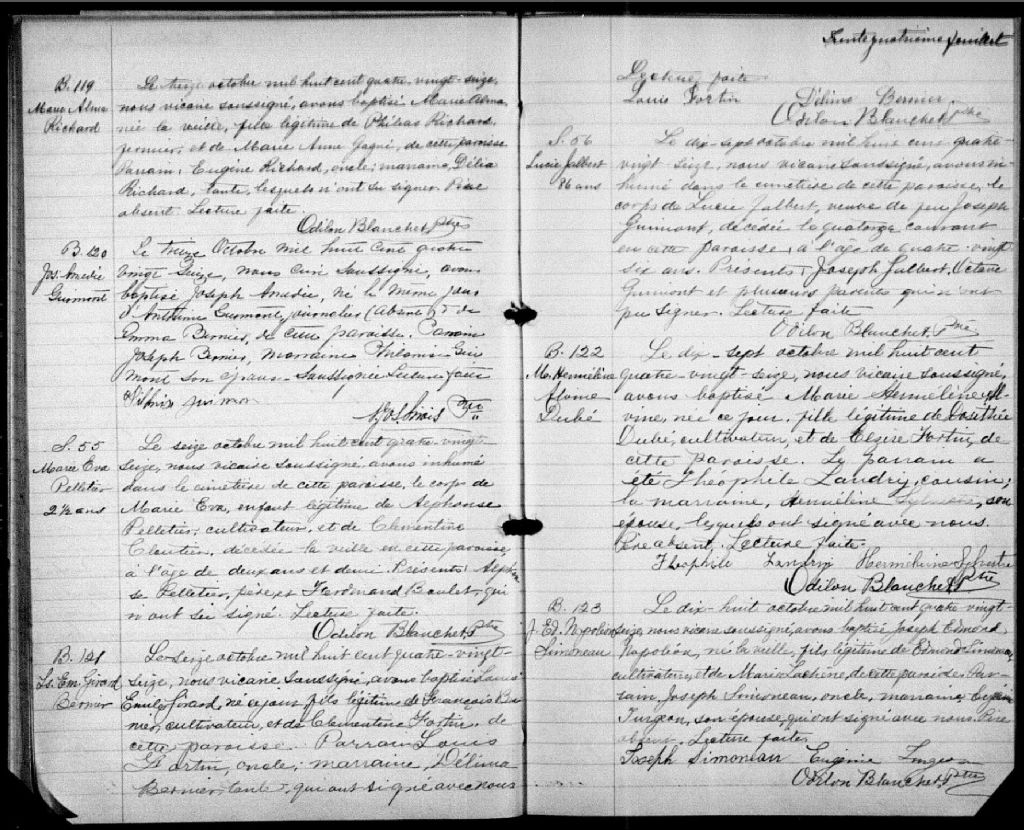 B. 119
Marie Alma
Richard
Le treize octobre mil huit cent quatre-vingt-seize,
nous vicaire soussigné, avons baptisé Marie Alma,
née la veille, fille légitime de Philias Richard,
fermier, et de Marie Anne Gagné, de cette paroisse
Parrain, Eugène Richard, oncle; marraine, Délia
Richard, tante, lesquels n'ont su signer. Père
absent. Lecture faite.
Odilon Blanchet, Ptre
B. 120
Jos. Amédée
Guimont
Le treize Octobre mil huit cent quatre
vingt seize, nous curé soussigné, avons
baptisé Joseph Amédée, né le même jour
d'Anthime Guimont, journalier (absent) & de
Emma Bernier, de cette paroisse. Parrain
Joseph Bernier, marraine Philomène Gui
mont son épouse soussignée Lecture faite
Ptre
S. 55
Marie Eva
Pelletier
2 ½ ans
Le seize octobre mil huit cent quatre-vingt-
seize, nous vicaire soussigné avons inhumé
dans le cimetière de cette paroisse, le corps de
Marie Eva, enfant légitime de Alphonse
Pelletier, cultivateur, et de Clémentine
Cloutier, décédée la veille en cette paroisse,
à l'âge de deux ans et demi. Présents: Alphon
se Pelletier, père, et Ferdinand Boulet, qui
n'ont su signé. Lecture faite.
Odilon Blanchet, Ptre
B. 121
Ls. Em. Girard
Bernier
Le seize octobre mil huit cent quatre-vingt-
seize, nous vicaire soussigné, avons baptisé Louis
Emile Girard, né ce jour, fils légitime de François Ber
nier, cultivateur, et de Clementine Fortin, de
cette paroisse. Parrain Louis
Fortin, oncle; marraine, Délima
Bernier, tante, qui ont signé avec nous
Trente quatrième feuillet
Lecture faite.
Louis Fortin Délima Bernier
Odilon Blanchet, Ptre
S. 56
Lucie Jalbert
86 ans
Le dix-sept octobre mil huit cent quatre-
vingt seize, nous vicaire soussigné, avons in-
humé dans le cimetière de cette paroisse, le
corps de Lucie Jalbert, veuve de feu Joseph
Guimont, décédée le quatorze courant
en cette paroisse, à l'âge de quatre-vingt
six ans. Présents, Joseph Jalbert, Octave
Guimont et plusieurs parents qui n'ont
pu signer. Lecture faite
Odilon Blanchet, Ptre
B. 122
M. Herméline
Dubé
Le dix-sept octobre mil huit cent
quatre-vingt-seize, nous vicaire soussigné,
avons baptisé Marie Herméline Al-
vine, née ce jour, fille légitime de Dosithée
Dubé, cultivateur, et de Elzire Fortin, de
cette paroisse. Le parrain a
été Théophile Landry, cousin;
la marraine, Herméline Sylvestre, son
épouse, lesquels ont signé avec nous.
Père absent, Lecture faite.
Théophile Landry Hermeline Sylvestre
Odilon Blanchet, Ptre
B. 123
J. Ed. Napoléon
Simoneau
Le dix-huit octobre mil huit cent quatre-vingt-
seize, nous vicaire soussigné, avons baptisé Joseph Edmond
Napoléon, né la veille, fils légitime de Edmond Simoneau,
cultivateur, et de Marie Lachene, de cette paroisse. Par-
rain, Joseph Simoneau, oncle, marraine, Eugénie
Turgeon, son épouse, qui ont signé avec nous. Père
absent. Lecture faite.
Joseph Simoneau Eugénie Turgeon
Odilon Blanchet, Ptre